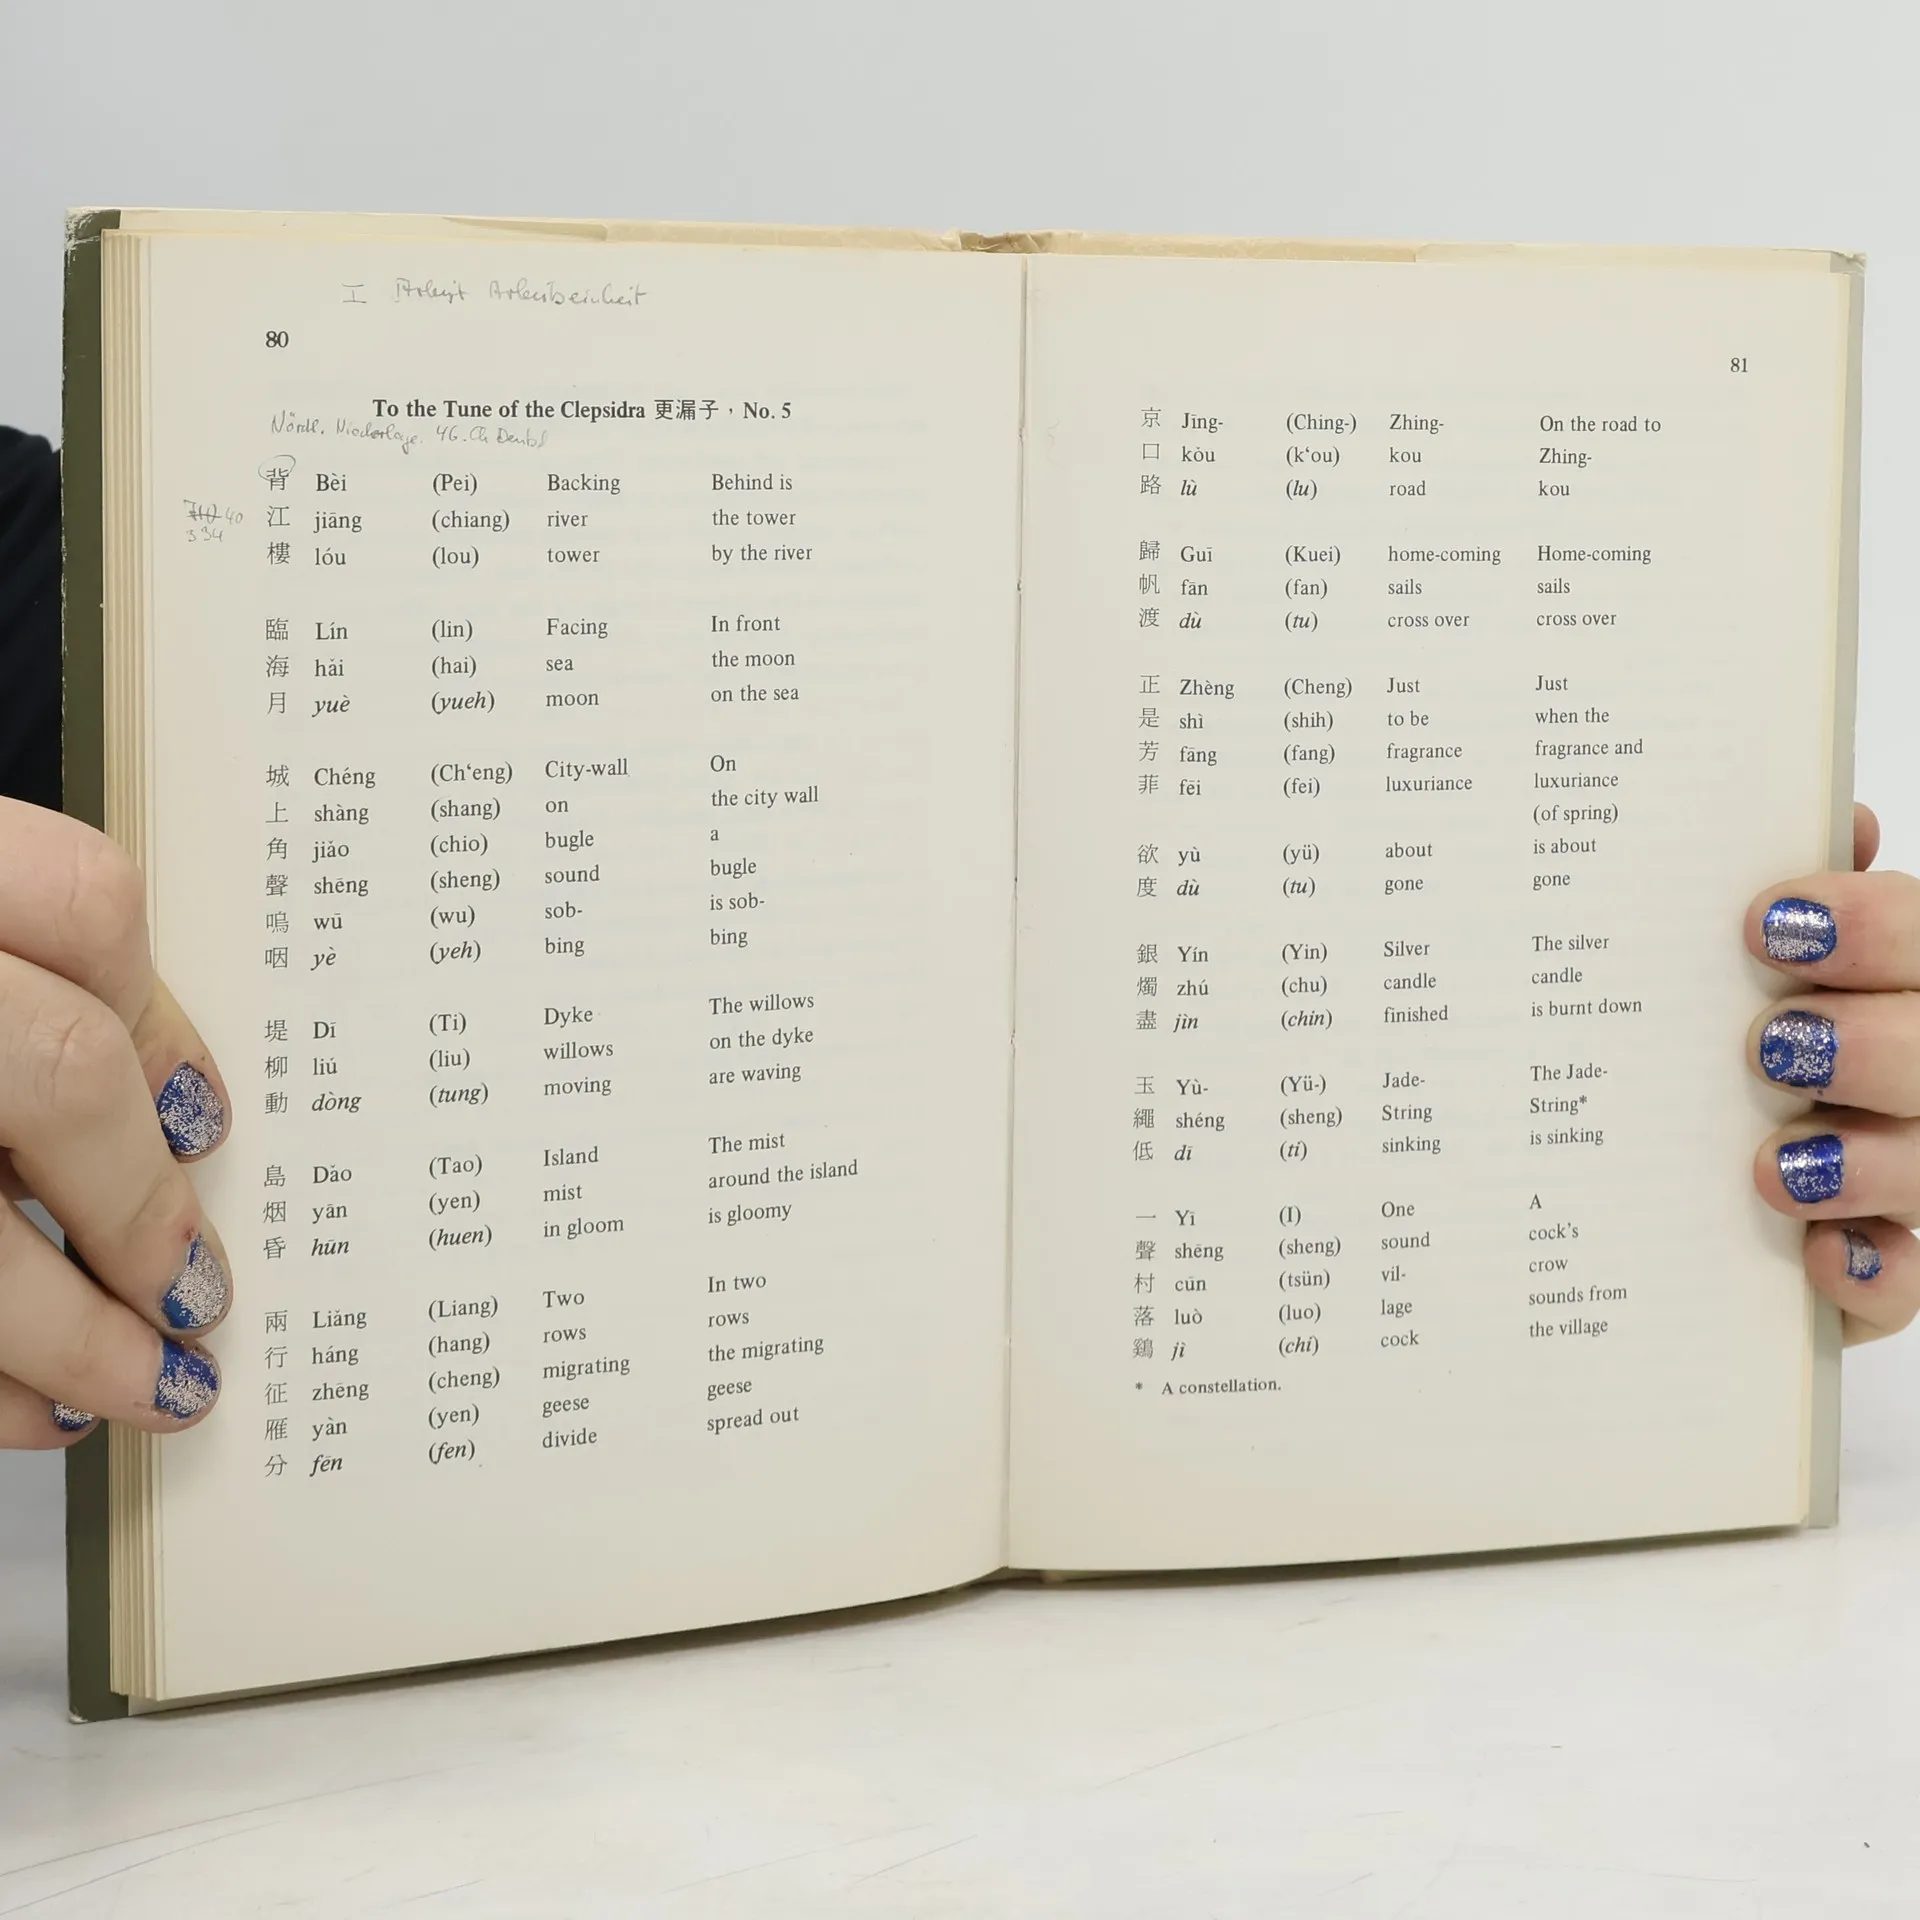 工
80
To the Tune of the Clepsidra 更漏子，No. 5
背 Bèi (Pei) Backing Behind is
江 jiāng (chiang) river the tower
樓 lóu (lou) tower by the river
臨 Lín (lin) Facing In front
海 hǎi (hai) sea the moon
月 yuè (yueh) moon on the sea
城 Chéng (Ch‘eng) City-wall On
上 shàng (shang) on the city wall
角 jiǎo (chio) bugle a
聲 shēng (sheng) sound bugle
嗚 wū (wu) sob- is sob-
咽 yè (yeh) bing bing
堤 Dī (Ti) Dyke The willows
柳 liú (liu) willows on the dyke
動 dòng (tung) moving are waving
島 Dǎo (Tao) Island The mist
烟 yān (yen) mist around the island
昏 hūn (huen) in gloom is gloomy
兩 Liǎng (Liang) Two In two
行 háng (hang) rows rows
征 zhēng (cheng) migrating the migrating
雁 yàn (yen) geese geese
分 fēn (fen) divide spread out
81
京 Jīng- (Ching-) Zhing- On the road to
口 kǒu (k‘ou) kou Zhing-
路 lù (lu) road kou
歸 Guī (Kuei) home-coming Home-coming
帆 fān (fan) sails sails
渡 dù (tu) cross over cross over
正 Zhèng (Cheng) Just Just
是 shì (shih) to be when the
芳 fāng (fang) fragrance fragrance and
菲 fēi (fei) luxuriance luxuriance
(of spring)
欲 yù (yü) about is about
度 dù (tu) gone gone
銀 Yín (Yin) Silver The silver
燭 zhú (chu) candle candle
盡 jìn (chin) finished is burnt down
玉 Yù- (Yü-) Jade- The Jade-
繩 shéng (sheng) String String*
低 dī (ti) sinking is sinking
一 Yī (I) One A
聲 shēng (sheng) sound cock's
村 cūn (tsün) vil- crow
落 luò (luo) lage sounds from
鷄 jī (chi) cock the village
* A constellation.